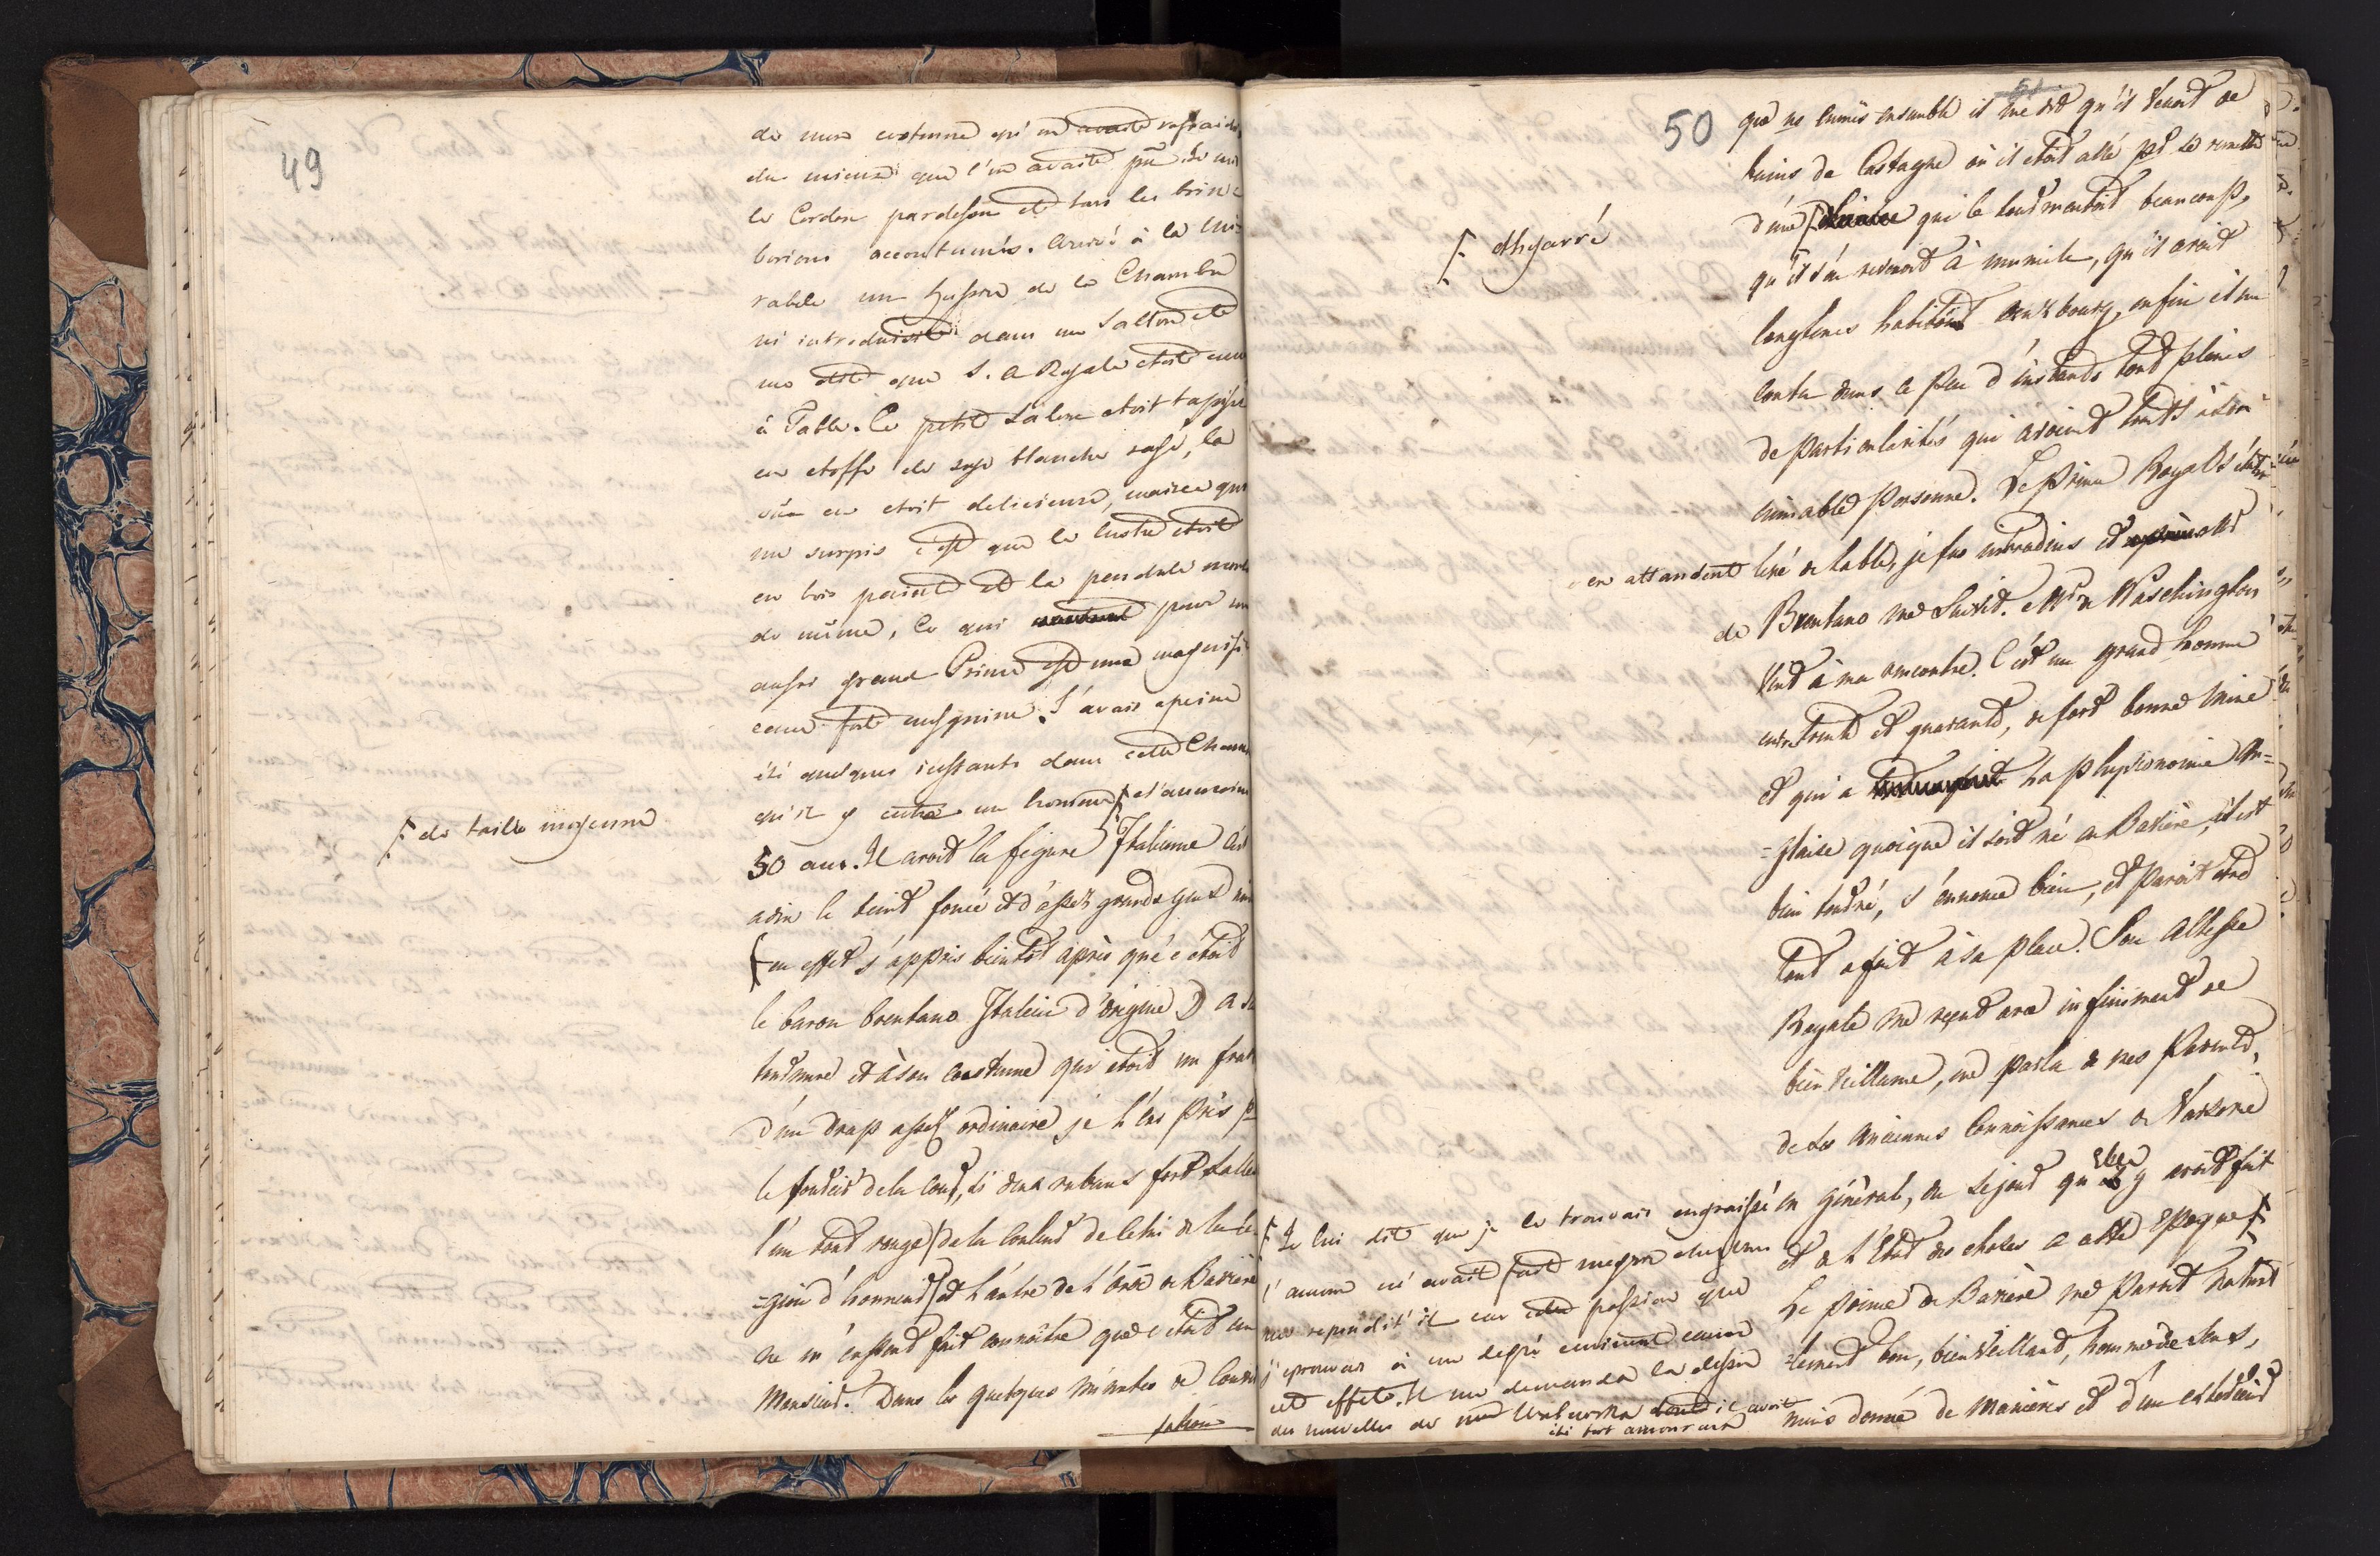 49
de mon costume qu'on avoit rafraichi
du mieux que l'on avoit pu. Je mis
le Cordon pardessus et tous les brin-
borions accoutumés. Arrivé à la
un hussard de la Chambre
m'introduisit dans un Sallon et
me dit que S. A Royale étoit encore
à Table. Ce petit Salon etoit tapissé
en etoffe de soye blanche rasé, la
vüe en etoit delicieuse, mais ce qui
me surpris c'est que le lustre étoit
en bois peint et la pendule
de même, ce qui pour un
aussi grand Prince est une magnifi-
cence fort mesquine. J'avais apeine
été quelques instants dans cette Chambre
qu'il y entra un homme et d'environ
de taille moyenne
50 ans. Il avoit la figure Italienne c'est
adire le teint foncé et d'assez grands yeux noirs
(en effet j'appris bientôt après que c'étoit
le baron Brentano Italien d'origine) A sa
tournure et à son costume qui étoit un frac
d'un drap assez ordinaire je l'eus pris pr
le de la Cour, si deux rubans fort salles
l'un tout rouge (de la couleur de celui de la Lé-
-gion d'honneur) et l'autre de l'ordre de Bavière
ne m'eussent fait connaître que c'étoit un
Monsieur. Dans les quelques minutes de conver
sation
50
51
que ns eumes ensemble il me dit qu'il venait de
bains de Castagne où il etoit allé pr se remettre
d'une qui le tourmentoit beaucoup,
dhyarré
qu'il s'en revenoit à Munich, qu'il avoit
longtems habité , enfin il me
conta dans ce peu d'instants tout pleins
de particularités qui avoient trait à son
aimable personne. Le Prince Royal s'étant
en attandent levé de table, je fus introduis et
de Brentano me suivit. Mr de Waschington
vint à ma rencontre. C'est un grand homme
entre trente et quarante, de fort bonne mine
et qui a la physionomie An=
=glaise quoique il soit né en Bavière, il est
bien tourné, s'ennonce bien, et paroît etre
tout a fait à sa place. Son Altesse
Royale me reçut avec infiniment de
bienveillance, me parla de mes Parents,
de ses anciennes Connoissances de Varsovie
en général, du sejour qu'Elle y avoit fait
et de l'Etat des choses a cette Epoque
Le Prince de Bavière me parut naturel
lement bon, bienveillant, homme de sens,
mais denué de Manières et d'un exterieur
Je lui dit que je le trouvais engraissé
l'amour m'avait fait maigrir
me repondit'il car cette passion que
j'eprouvais à un degré eminent
cet effet. Il me demanda la dessus
des nouvelles de me Walewska dont il avoit
été fort amoureux